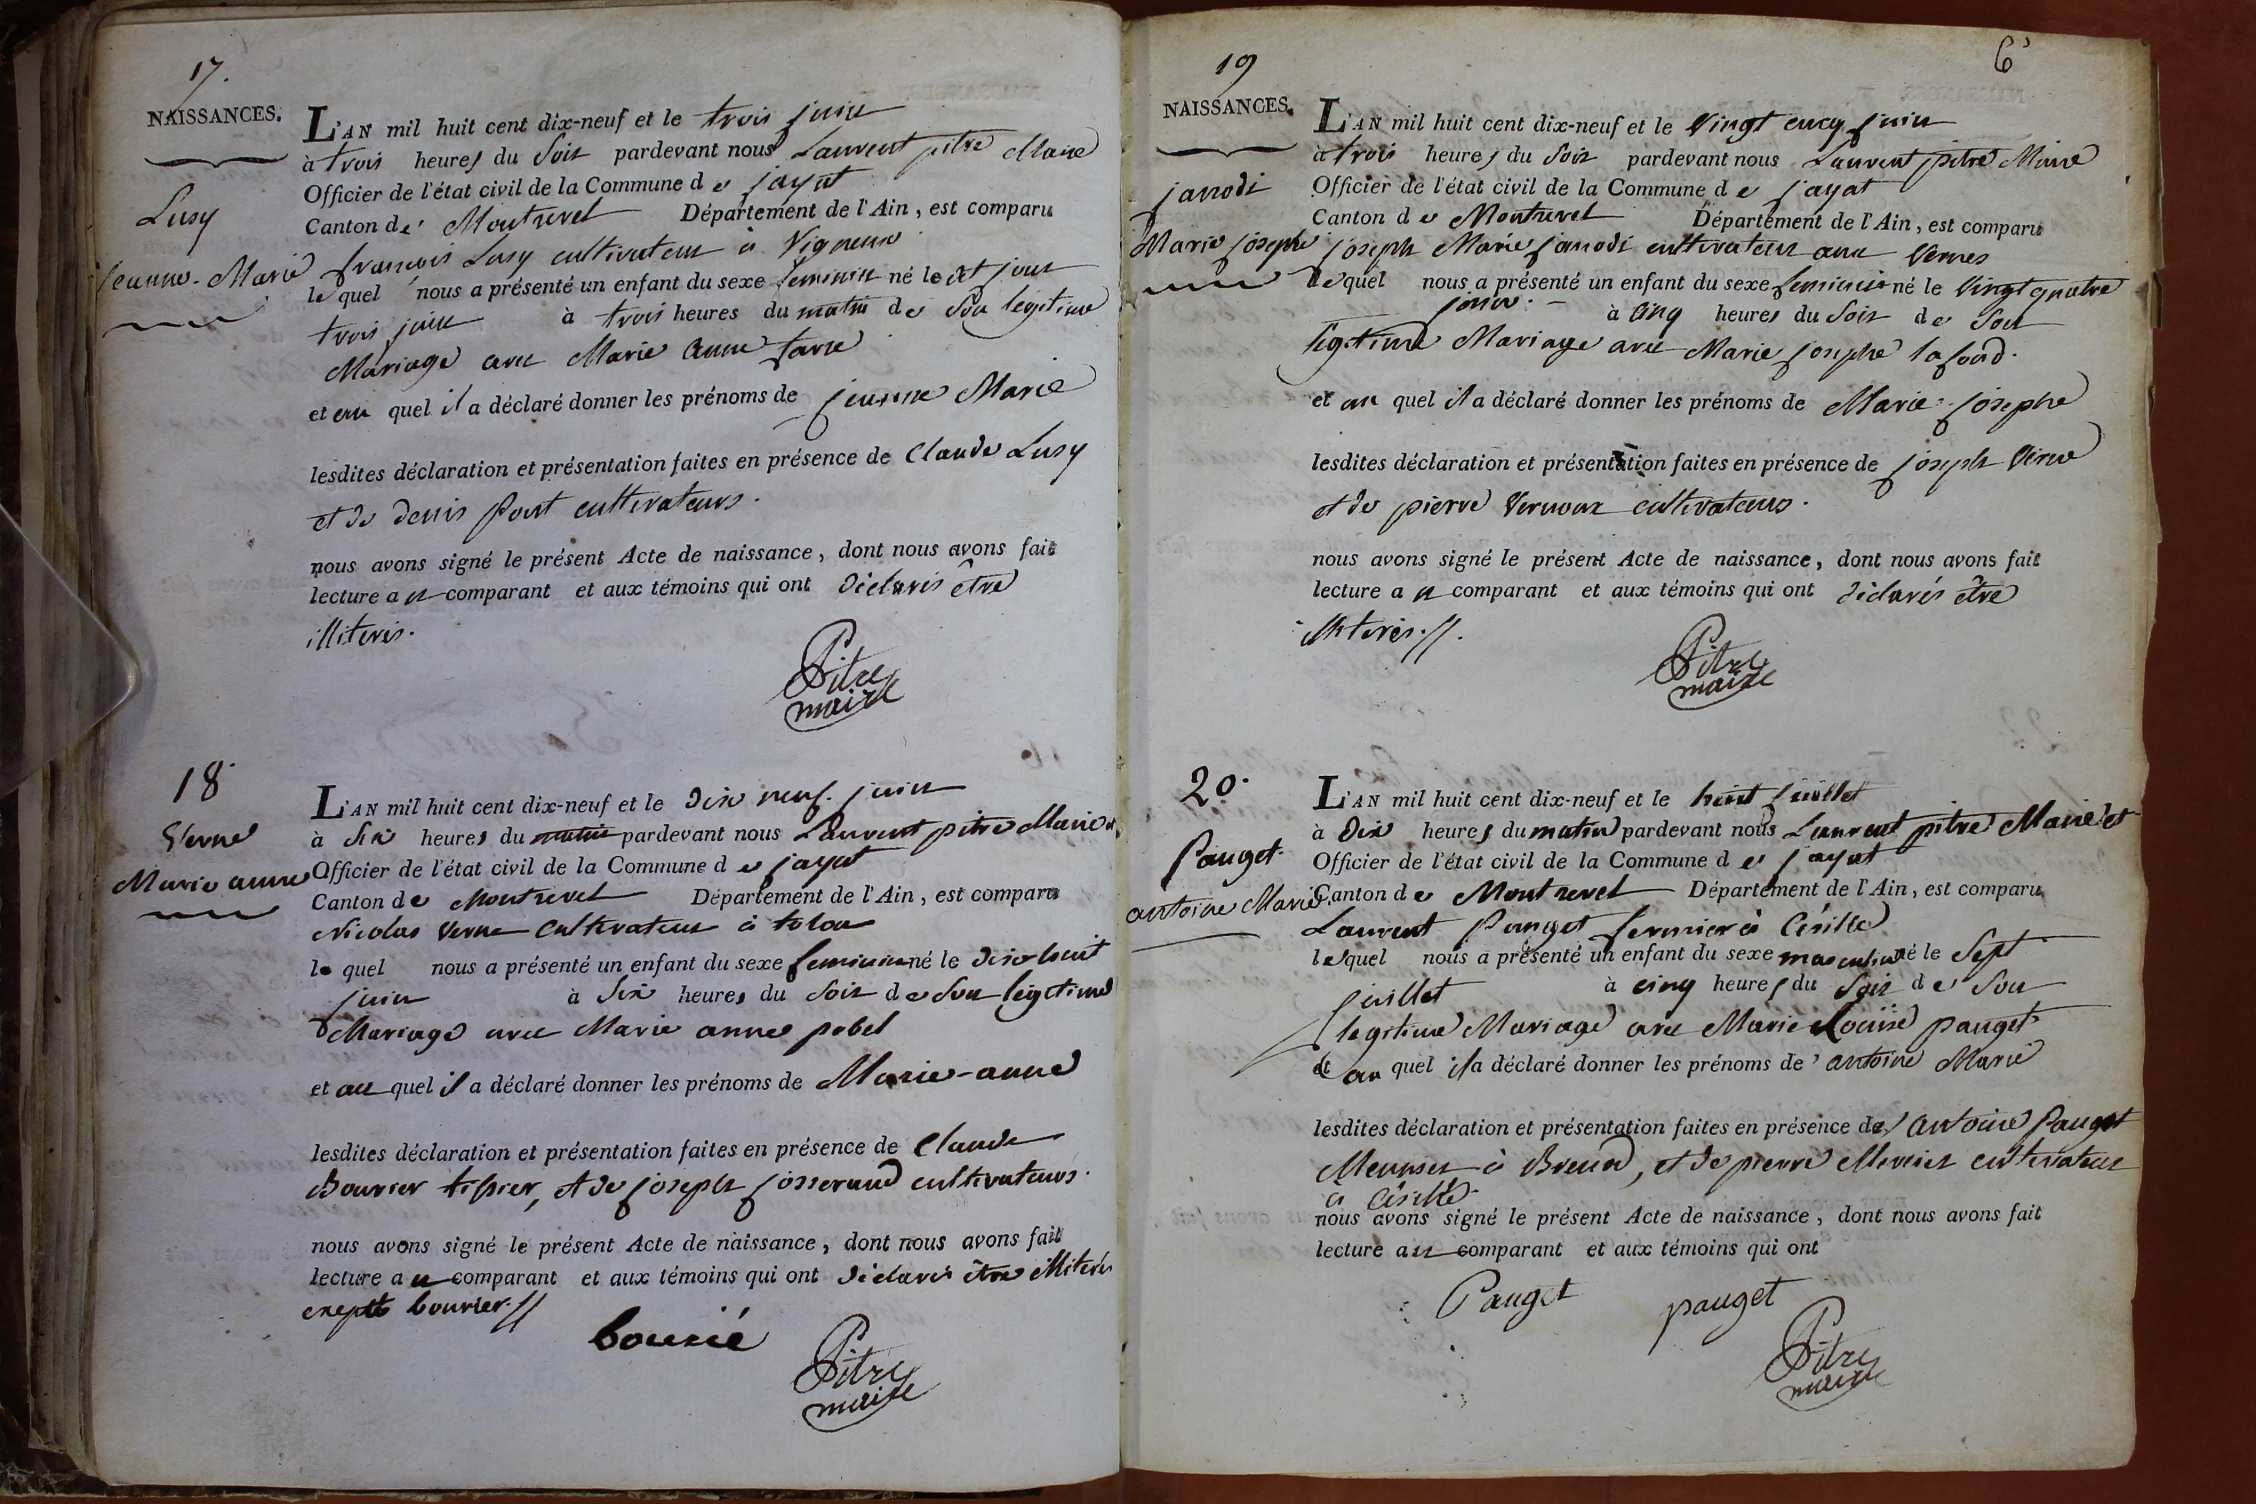 17.
NAISSANCES.
L'AN mil huit cent dix-neuf et le trois juin
à trois heures du soir pardevant nous Laurent pitre Maire
Officier de l'état civil de la Commune de jayat
Lusy
Canton de Montrevel Département de l'Ain, est comparu
françois Lusy cultivateur à Vigneux
jeanne-Marie
lequel nous a présenté un enfant du sexe feminin né le dt jour
trois juin à trois heures du matin de son légitime
Mariage avec Marie anne favre
et au quel il a déclaré donner les prénoms de jeanne Marie
lesdites déclaration et présentation faites en présence de Claude Lusy
et de denis Pont cultivateurs.
nous avons signé le présent Acte de naissance, dont nous avons fait
lecture au comparant et aux témoins qui ont déclarés être
illiterés.
Pitre
maire
18
L'AN mil huit cent dix-neuf et le dix neuf juin
Verne
à six heures du matin pardevant nous Laurent pitre Maire et
Officier de l'état civil de la Commune de jayat
Marie anne
Canton de Montrevel Département de l'Ain, est comparu
Nicolas Verne Cultivateur à tolou
lequel nous a présenté un enfant du sexe feminin né le dix huit
juin à six heures du soir de son légitime
Mariage avec Marie anne pobel
et au quel il a déclaré donner les prénoms de Marie-anne
lesdites déclaration et présentation faites en présence de Claude
Bouvier tissier, et de joseph josserand cultivateurs.
nous avons signé le présent Acte de naissance, dont nous avons fait
lecture au comparant et aux témoins qui ont déclarés être illiterés
exepté bouvier.//
bouvié
Pitre
maire
6
19
NAISSANCES.
L'AN mil huit cent dix-neuf et le Vingt cinq juin
à trois heures du soir pardevant nous Laurent pitre Maire
janodi
Officier de l'état civil de la Commune de jayat
Canton de Montrevel Département de l'Ain, est comparu
Marie josephe
joseph Marie janodi cultivateur aux Vernes
lequel nous a présenté un enfant du sexe feminin né le Vingt quatre
juin à cinq heures du soir de son
légitime Mariage avec Marie josephe lafond.
et au quel il a déclaré donner les prénoms de Marie-josephe
lesdites déclaration et présentation faites en présence de joseph Verne
et de pierre Vernoux cultivateurs.
nous avons signé le présent Acte de naissance, dont nous avons fait
lecture au comparant et aux témoins qui ont déclarés être
illiterés.//.
Pitre
maire
20.
L'AN mil huit cent dix-neuf et le huit juillet
à dix heures du matin pardevant nous Laurent pitre Maire et
Pauget.
Officier de l'état civil de la Commune de jayat
antoine Marie
Canton de Montrevel Département de l'Ain, est comparu
Laurent Pauget fermier à Césille
lequel nous a présenté un enfant du sexe masculin né le Sept
juillet à cinq heures du soir de son
légitime Mariage avec Marie Louise pauget
et au quel il a déclaré donner les prénoms de antoine Marie
lesdites déclaration et présentation faites en présence de antoine Pauget
Meunier à Brenod, et de pierre Mercier cultivateur
à Césille.
nous avons signé le présent Acte de naissance, dont nous avons fait
lecture au comparant et aux témoins qui ont
Pauget pauget
Pitre
maire